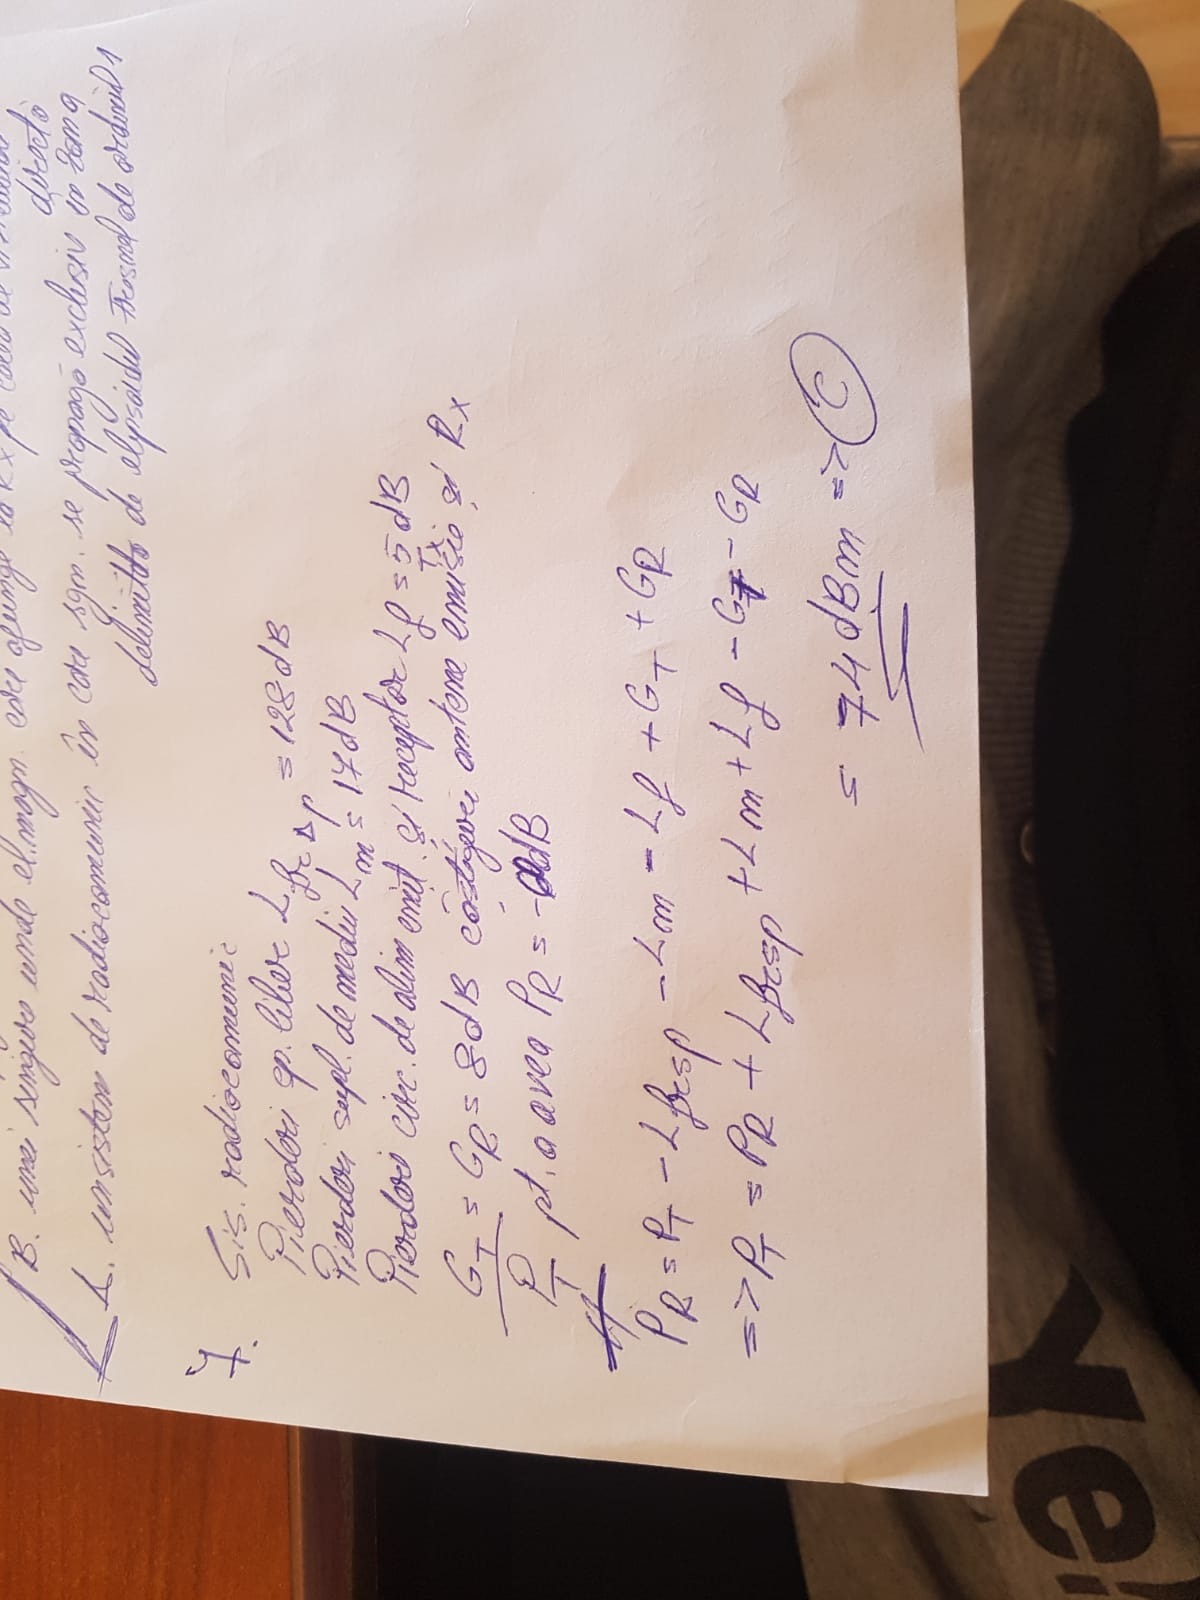 B. unei singure unde el.magn. care ajunge la Rx pe calea de vizibilitate directă
A. un sistem de radiocomunic în care sgn. se propagă exclusiv în zona delimitată de elipsoidul Fresnel de ordinul 1
7. Sis. radiocomunic
Pierderi sp. liber L frsp = 128 dB
Pierderi supl. de mediu Lm = 17 dB
Pierderi circ. de alim emiț. și receptor Lf = 5 dB
GT = GR = 8 dB câștiguri antene emisie Tx și Rx
PT pt. a avea PR = - dB
PR = PT - Lfrsp - Lm - Lf + GT + GR
=> PT = PR + Lfrsp + Lm + Lf - GT - GR
= 74 dBm => C
Ye